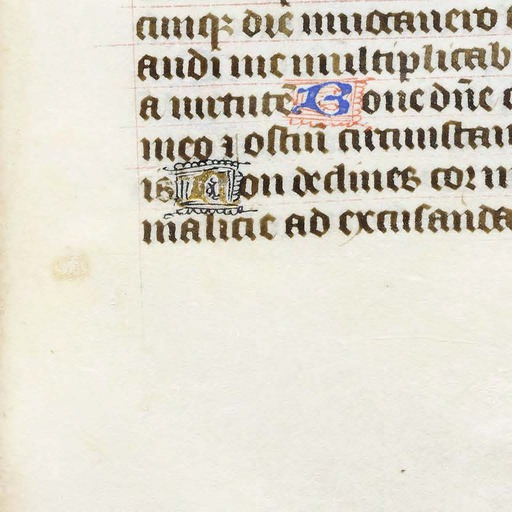 cunqȝ die inuocauero
audi me multiplicab
a uirtutē Pone dñe
meo ⁊ ostiū circumstan
is Non declines cor m
malicie ad excusanda